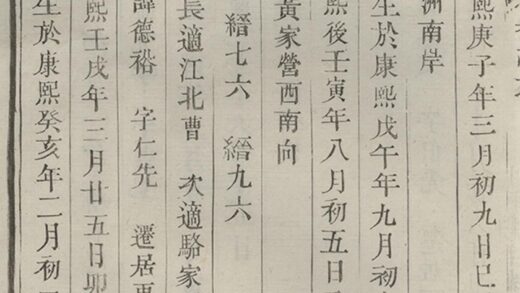 熙庚子年三月初九日巳
洲南岸
生於康熙戊午年九月初
熙後壬寅年八月初五日
黃家營西南向
縉七六 縉九六
長適江北曹 次適駱家
諱德裕 字仁先 遷居
熙壬戌年三月廿五日卯
生於康熙癸亥年二月初